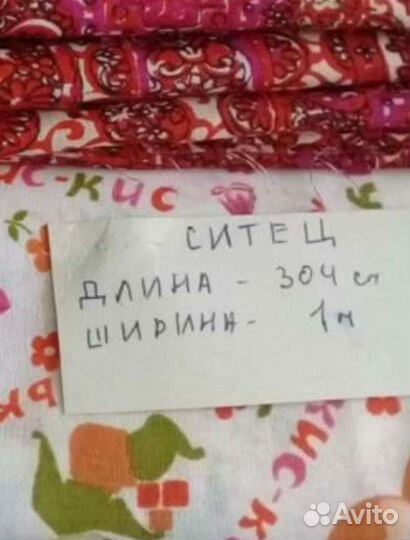 ис-кис
СИТЕЦ
ДЛИНА - 304 см
ШИРИНА - 1 м
кис-к
Avito